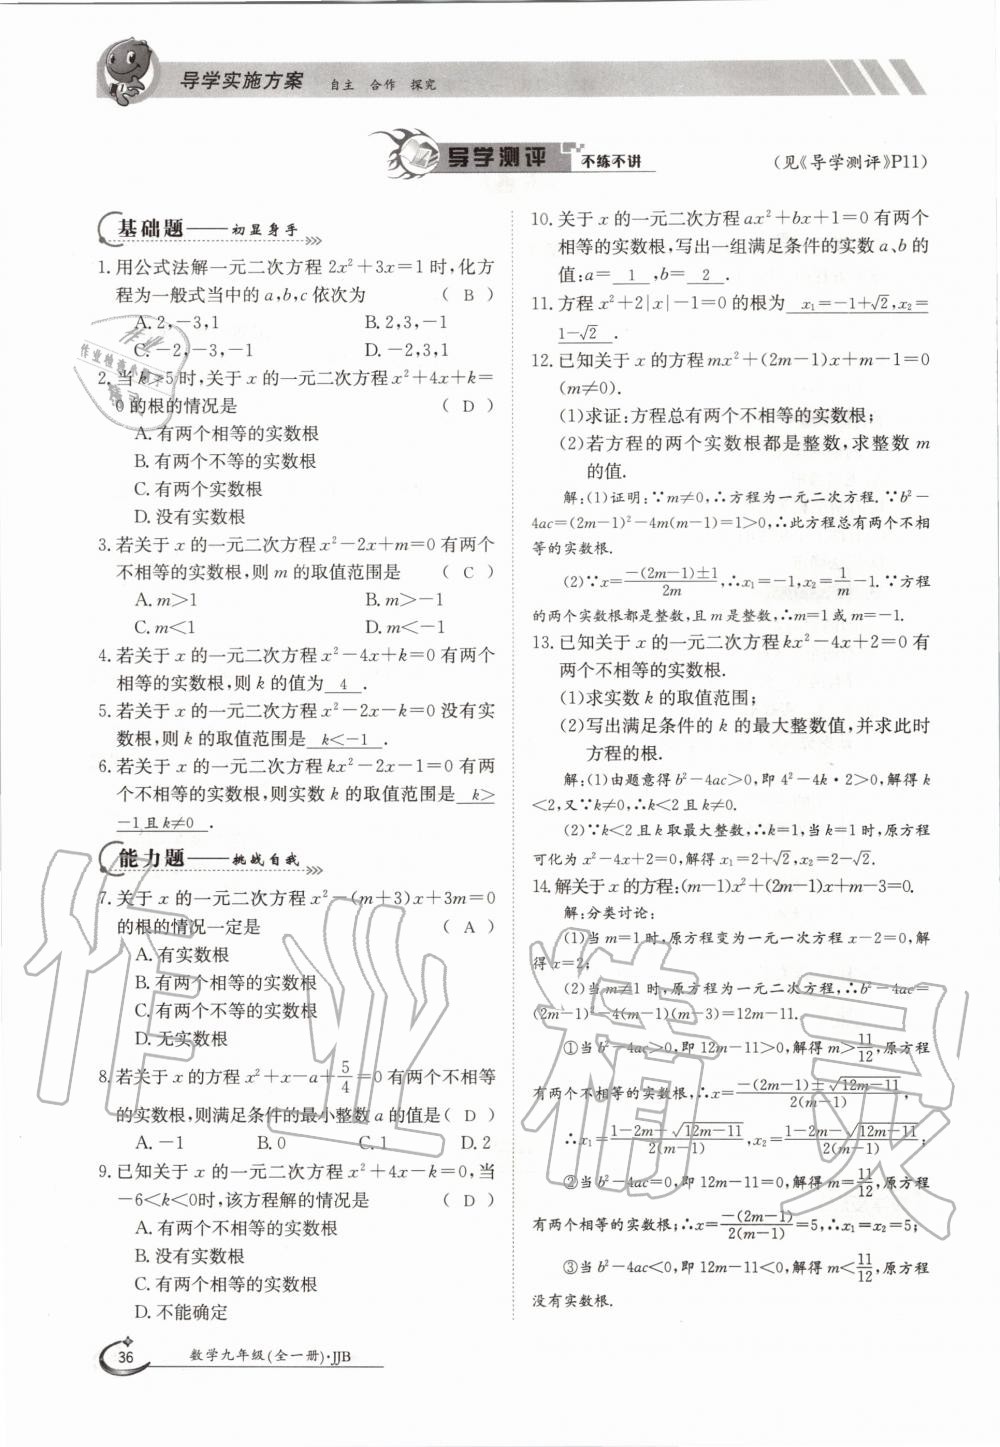 导学实施方案 自主 合作 探究
导学测评 不练不讲
(见《导学测评》P11)
基础题——初显身手
1. 用公式法解一元二次方程 2x²+3x=1 时,化方
程为一般式当中的 a,b,c 依次为 ( B )
A. 2,-3,1 B. 2,3,-1
C. -2,-3,-1 D. -2,3,1
2. 当 k>5 时,关于 x 的一元二次方程 x²+4x+k=
0 的根的情况是 ( D )
A. 有两个相等的实数根
B. 有两个不等的实数根
C. 有两个实数根
D. 没有实数根
3. 若关于 x 的一元二次方程 x²-2x+m=0 有两个
不相等的实数根,则 m 的取值范围是 ( C )
A. m>1 B. m>-1
C. m<1 D. m<-1
4. 若关于 x 的一元二次方程 x²-4x+k=0 有两个
相等的实数根,则 k 的值为 4 .
5. 若关于 x 的一元二次方程 x²-2x-k=0 没有实
数根,则 k 的取值范围是 k<-1 .
6. 若关于 x 的一元二次方程 kx²-2x-1=0 有两
个不相等的实数根,则实数 k 的取值范围是 k>
-1且 k≠0 .
能力题——挑战自我
7. 关于 x 的一元二次方程 x²-(m+3)x+3m=0
的根的情况一定是 ( A )
A. 有实数根
B. 有两个相等的实数根
C. 有两个不等的实数根
D. 无实数根
8. 若关于 x 的方程 x²+x-a+5/4=0 有两个不相等
的实数根,则满足条件的最小整数 a 的值是( D )
A. -1 B. 0 C. 1 D. 2
9. 已知关于 x 的一元二次方程 x²+4x-k=0,当
-6<k<0时,该方程解的情况是 ( D )
A. 有两个不相等的实数根
B. 没有实数根
C. 有两个相等的实数根
D. 不能确定
36 数学九年级(全一册)·JJB
10. 关于 x 的一元二次方程 ax²+bx+1=0 有两个
相等的实数根,写出一组满足条件的实数 a、b 的
值:a= 1 ,b= 2 .
11. 方程 x²+2|x|-1=0 的根为 x₁=-1+√2,x₂=
1-√2 .
12. 已知关于 x 的方程 mx²+(2m-1)x+m-1=0
(m≠0).
(1)求证:方程总有两个不相等的实数根;
(2)若方程的两个实数根都是整数,求整数 m
的值.
解:(1)证明:∵m≠0,∴方程为一元二次方程.∵b²-
4ac=(2m-1)²-4m(m-1)=1>0,∴此方程总有两个不相
等的实数根.
(2)∵x=(-(2m-1)±1)/2m,∴x₁=-1,x₂=1/m-1.∵方程
的两个实数根都是整数,且 m 是整数,∴m=1或 m=-1.
13. 已知关于 x 的一元二次方程 kx²-4x+2=0 有
两个不相等的实数根.
(1)求实数 k 的取值范围;
(2)写出满足条件的 k 的最大整数值,并求此时
方程的根.
解:(1)由题意得 b²-4ac>0,即 4²-4k·2>0,解得 k
<2,又∵k≠0,∴k<2且 k≠0.
(2)∵k<2且 k 取最大整数,∴k=1,当 k=1时,原方程
可化为 x²-4x+2=0,解得 x₁=2+√2,x₂=2-√2.
14. 解关于 x 的方程:(m-1)x²+(2m-1)x+m-3=0.
解:分类讨论:
(1)当 m=1时,原方程变为一元一次方程 x-2=0,解
得 x=2;
(2)当 m≠1时,原方程为一元二次方程,∴b²-4ac=
(2m-1)²-4(m-1)(m-3)=12m-11.
①当 b²-4ac>0,即 12m-11>0,解得 m>11/12,原方程
有两个不相等的实数根,∴x=(-(2m-1)±√(12m-11))/2(m-1)
∴x₁=(1-2m+√(12m-11))/2(m-1),x₂=(1-2m-√(12m-11))/2(m-1);
②当 b²-4ac=0,即 12m-11=0,解得 m=11/12,原方程
有两个相等的实数根;∴x=-(2m-1)/2(m-1)=5,∴x₁=x₂=5;
③当 b²-4ac<0,即 12m-11<0,解得 m<11/12,原方程
没有实数根.
作业精灵